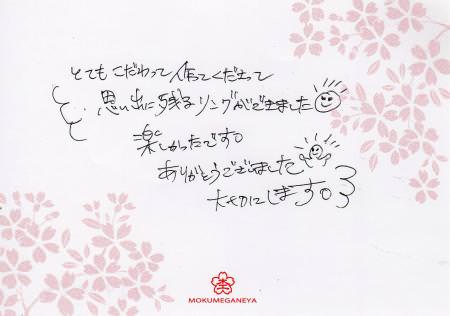 とてもこだわって作ってくださって
思い出に残るリングができました
楽しかったです。
ありがとうございました
大切にします。
MOKUMEGANEYA